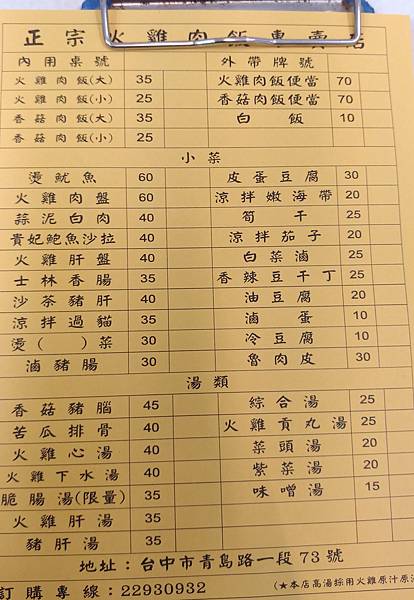 正宗火雞肉飯專賣店
內用桌號 外帶牌號
火雞肉飯(大) 35 火雞肉飯便當 70
火雞肉飯(小) 25 香菇肉飯便當 70
香菇肉飯(大) 35 白飯 10
香菇肉飯(小) 25
小菜
燙魷魚 60 皮蛋豆腐 30
火雞肉盤 60 涼拌嫩海帶 20
蒜泥白肉 40 筍干 25
貴妃鮑魚沙拉 40 涼拌茄子 20
火雞肝盤 40 白菜滷 25
士林香腸 35 香辣豆干丁 25
沙茶豬肝 40 油豆腐 20
涼拌過貓 35 滷蛋 10
燙( )菜 30 冷豆腐 10
滷豬腸 30 魯肉皮 30
湯類
香菇豬腦 45 綜合湯 25
苦瓜排骨 40 火雞貢丸湯 25
火雞心湯 40 菜頭湯 20
火雞下水湯 40 紫菜湯 20
脆腸湯(限量) 35 味噌湯 15
火雞肝湯 35
豬肝湯 35
地址:台中市青島路一段73號
訂購專線:22930932 (★本店高湯採用火雞原汁原